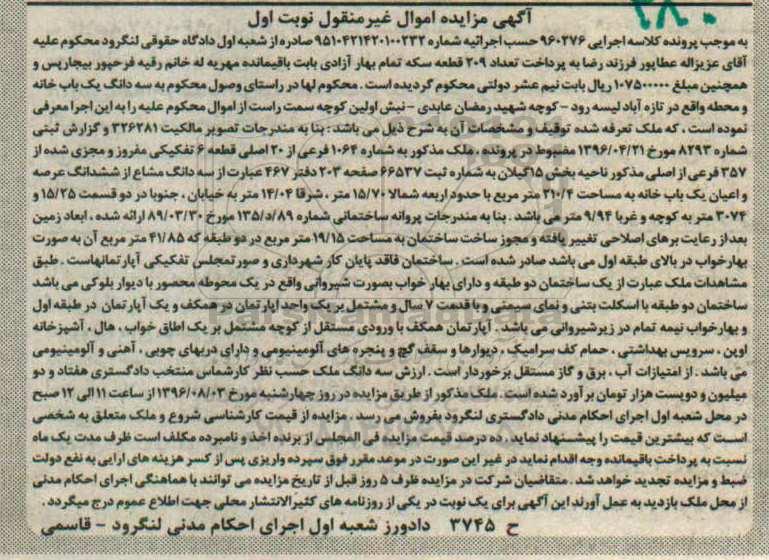 ۳۸۰
آگهی مزایده اموال غیرمنقول نوبت اول
به موجب پرونده کلاسه اجرایی ۹۶۰۲۷۶ حسب اجرائیه شماره ۹۵۱۰۴۲۱۴۲۰۱۰۰۲۳۲ صادره از شعبه اول دادگاه حقوقی لنگرود محکوم علیه
آقای عزیزاله عطاپور فرزند رضا به پرداخت تعداد ۲۰۹ قطعه سکه تمام بهار آزادی بابت باقیمانده مهریه له خانم رقیه فرحپور بیجارپس و
همچنین مبلغ ۱۰۷۵۰۰۰۰۰ ریال بابت نیم عشر دولتی محکوم گردیده است. محکوم لها در راستای وصول محکوم به سه دانگ یک باب خانه
و محطه واقع در تازه آباد لیسه رود - کوچه شهید رمضان عابدی - نبش اولین کوچه سمت راست از اموال محکوم علیه را به این اجرا معرفی
نموده است، که ملک تعرفه شده توقیف و مشخصات آن به شرح ذیل می باشد: بنا به مندرجات تصویر مالکیت ۳۲۶۲۸۱ و گزارش ثبتی
شماره ۸۲۹۳ مورخ ۱۳۹۶/۰۴/۲۱ مضبوط در پرونده، ملک مذکور به شماره ۱۰۶۴ فرعی از ۲۰ اصلی قطعه ۶ تفکیکی مفروز و مجزی شده از
۳۵۷ فرعی از اصلی مذکور ناحیه بخش ۱۵گیلان به شماره ثبت ۶۶۵۳۷ صفحه ۲۰۳ دفتر ۴۶۷ عبارت از سه دانگ مشاع از ششدانگ عرصه
و اعیان یک باب خانه به مساحت ۲۱۰/۴ متر مربع با حدود اربعه شمالا ۱۵/۷۰ متر، شرقا ۱۴/۰۴ متر به خیابان، جنوبا در دو قسمت ۱۵/۲۵ و
۳۰۷۴ متر به کوچه و غربا ۹/۹۴ متر می باشد. بنا به مندرجات پروانه ساختمانی شماره ۱۳۵/د/۸۹ مورخ ۸۹/۰۳/۳۰ ارائه شده، ابعاد زمین
بعد از رعایت برهای اصلاحی تغییر یافته و مجوز ساخت ساختمان به مساحت ۱۹/۱۵ متر مربع در دو طبقه که ۴۱/۸۵ متر مربع آن به صورت
بهارخواب در بالای طبقه اول می باشد صادر شده است. ساختمان فاقد پایان کار شهرداری و صورتمجلس تفکیکی آپارتمانهاست. طبق
مشاهدات ملک عبارت از یک ساختمان دو طبقه و دارای بهار خواب بصورت شیروانی واقع در یک محوطه محصور با دیوار بلوکی می باشد
ساختمان دو طبقه با اسکلت بتنی و نمای سیمتی و با قدمت ۷ سال و مشتمل بر یک واحد اپارتمان در همکف و یک آپارتمان در طبقه اول
و بهارخواب نیمه تمام در زیرشیروانی می باشد. آپارتمان همکف با ورودی مستقل از کوچه مشتمل بر یک اطاق خواب، هال، آشپزخانه
اوپن، سرویس بهداشتی، حمام کف سرامیک، دیوارها و سقف گچ و پنجره های آلومینیومی و دارای دربهای چوبی، آهنی و آلومینیومی
می باشد. از امتیازات آب، برق و گاز مستقل برخوردار است. ارزش سه دانگ ملک حسب نظر کارشماس منتخب دادگستری هفتاد و دو
میلیون و دویست هزار تومان برآورد شده است. ملک مذکور از طریق مزایده در روز چهارشنبه مورخ ۱۳۹۶/۰۸/۰۳ از ساعت ۱۱ الی ۱۲ صبح
در محل شعبه اول اجرای احکام مدنی دادگستری لنگرود بفروش می رسد. مزایده از قیمت کارشناسی شروع و ملک متعلق به شخصی
است که بیشترین قیمت را پیشنهاد نماید، ده درصد قیمت مزایده فی المجلس از برنده اخذ و نامبرده مکلف است ظرف مدت یک ماه
نسبت به پرداخت باقیمانده وجه اقدام نماید در غیر این صورت در موعد مقرر فوق سپرده واریزی پس از کسر هزینه های ارایی به نفع دولت
ضبط و مزایده تجدید خواهد شد. متقاضیان شرکت در مزایده ظرف ۵ روز قبل از تاریخ مزایده می توانند با هماهنگی اجرای احکام مدنی
از محل ملک بازدید به عمل آورند این آگهی برای یک نوبت در یکی از روزنامه های کثیرالانتشار محلی جهت اطلاع عموم درج میگردد.
ح ۳۷۴۵ دادورز شعبه اول اجرای احکام مدنی لنگرود - قاسمی